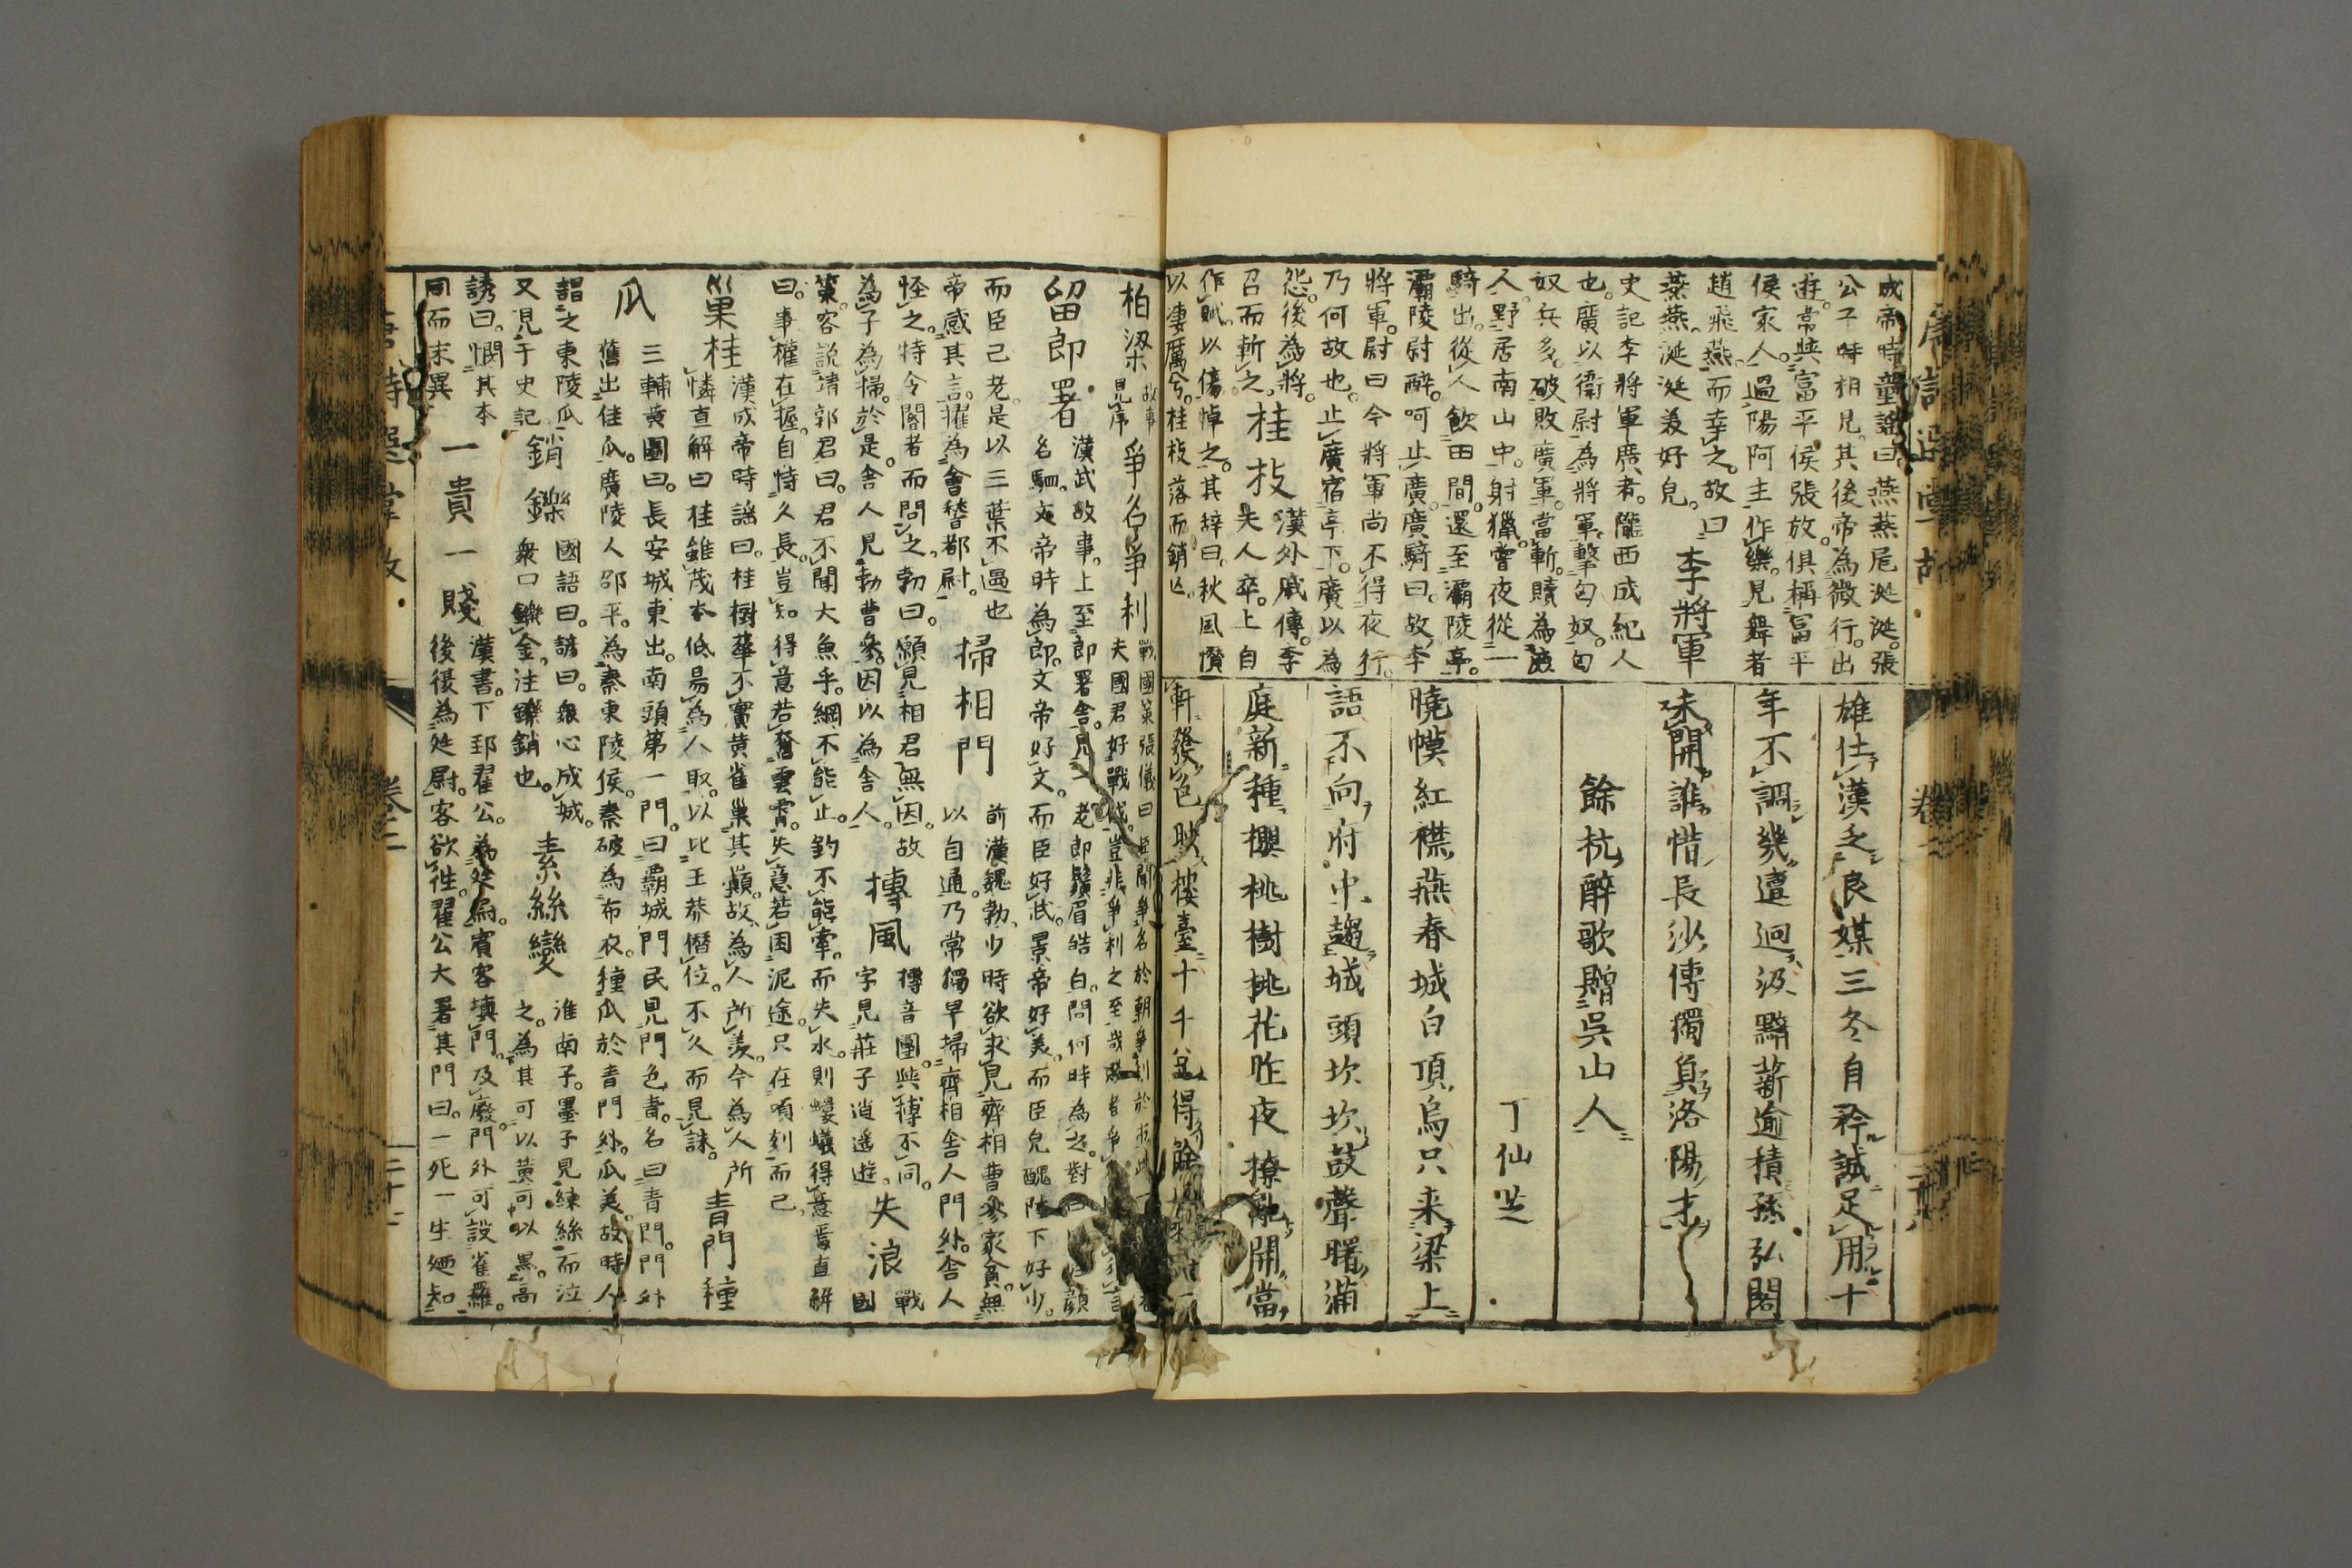 唐詩選掌故
卷二
成帝時童謠曰。燕燕尾涎涎。張
公子時相見。其後帝為微行。出
遊。常與富平侯張放。俱稱富平
侯家人。過陽阿主作樂。見舞者
趙飛燕。而幸之。故曰
燕燕。涎涎美好皃。
李將軍
史記李將軍廣者。隴西成紀人
也。廣以衛尉為將軍。擊匈奴。匈
奴兵多。破敗廣軍。當斬。贖為庶
人。野居南山中。射獵。嘗夜從一
騎出。從人飲田間。還至灞陵亭。
灞陵尉醉。呵止廣。廣騎曰。故李
將軍。尉曰今將軍尚不得夜行。
乃何故也。止廣宿亭下。廣以為
怨。後為將。
召而斬之。
桂枝
漢外戚傳。李
夫人卒。上自
作賦。以傷悼之。其辞曰。秋風憯
以凄厲兮。桂枝落而銷亡。
雄仕漢乏良媒三冬自矜誠足用十
年不調幾邅迴汲黯薪逾積孫弘閣
未開誰惜長沙傅獨負洛陽才
餘杭醉歌贈吳山人
丁仙芝
曉幙紅襟燕春城白頂烏只来梁上
語不向府中趨城頭坎坎鼓聲曙滿
庭新種櫻桃樹桃花昨夜撩亂開當
軒發色映樓臺十千兌得餘杭
柏梁
故事
見序
爭名爭利
戰國策張儀曰臣聞爭名於朝爭利於市
夫國君好戰伐豈非爭利之至哉
留郎署
漢武故事。上至郎署舍。見一老郎鬚眉皓白。問何時為之。對
名駟。文帝時為郎。文帝好文。而臣好武。景帝好美。而臣皃醜。陛下好少。
而臣已老。是以三葉不遇也
帝感其言。擢為會稽都尉。
掃相門
前漢魏勃。少時欲求見齊相曹參。家貧。無
以自通。乃常獨早掃齊相舍人門外。舍人
怪之。特令閽者而問之。勃曰。願見相君無因。故
為子為掃。於是。舍人見勃曹參。因以為舍人。
摶風
摶音團。與搏不同。
字見莊子逍遙遊。
失浪
戰國
策。客説靖郭君曰。君不聞大魚乎。網不能止。釣不能牽。而失水。則螻蟻得意焉直解
曰。事權在握。自恃久長。豈知。得意若奮雲霄。失意若困泥途。只在頃刻而已。
巢桂
漢成帝時謡曰。桂樹華不實黄雀巢其顛。故為人所羨。今為人所
憐直解曰桂雖茂本低易為人取。以比王莽僭位。不久而見誅。
青門種
瓜
三輔黄圖曰。長安城東出。南頭第一門。曰覇城門民見門色青。名曰青門。門外
舊出佳瓜。廣陵人邵平。為秦東陵侯。秦破為布衣。種瓜於青門外。瓜美。故時人
謂之東陵瓜
又見于史記
銷鑠
國語曰。諺曰。衆心成城。
衆口鑠金。注鑠銷也。
素絲變
淮南子。墨子見練絲。而泣
之。為其可以黄可以黒。高
誘曰。憫其本
同而末異
一貴一賤
漢書。下邽翟公。為廷尉。賓客填門。及廢。門外可設雀羅。
後復為廷尉。客欲往。翟公大署其門曰。一死一生廼知
唐詩選掌故
卷二